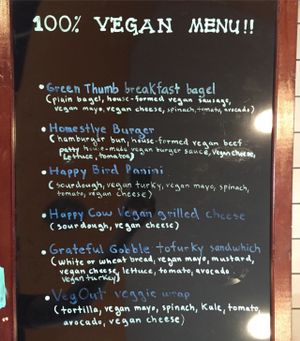 100% VEGAN MENU!!
• Green Thumb breakfast bagel
(plain bagel, house-formed vegan sausage,
vegan mayo, vegan cheese, spinach, tomato, avocado)
• Homestlye Burger
(hamburger bun, house-formed vegan beef
patty house-made vegan burger sauce, vegan cheese,
lettuce, tomatos)
• Happy Bird Panini
(sourdough, vegan turky, vegan mayo, spinach,
tomato, vegan cheese)
• Happy Cow Vegan grilled cheese
(sourdough, vegan cheese)
• Grateful Gobble tofurky sandwhich
(white or wheat bread, vegan mayo, mustard,
vegan cheese, lettuce, tomato, avocado
vegan turkey)
• VegOut veggie wrap
(tortilla, vegan mayo, spinach, Kale, tomato,
avocado, vegan cheese)